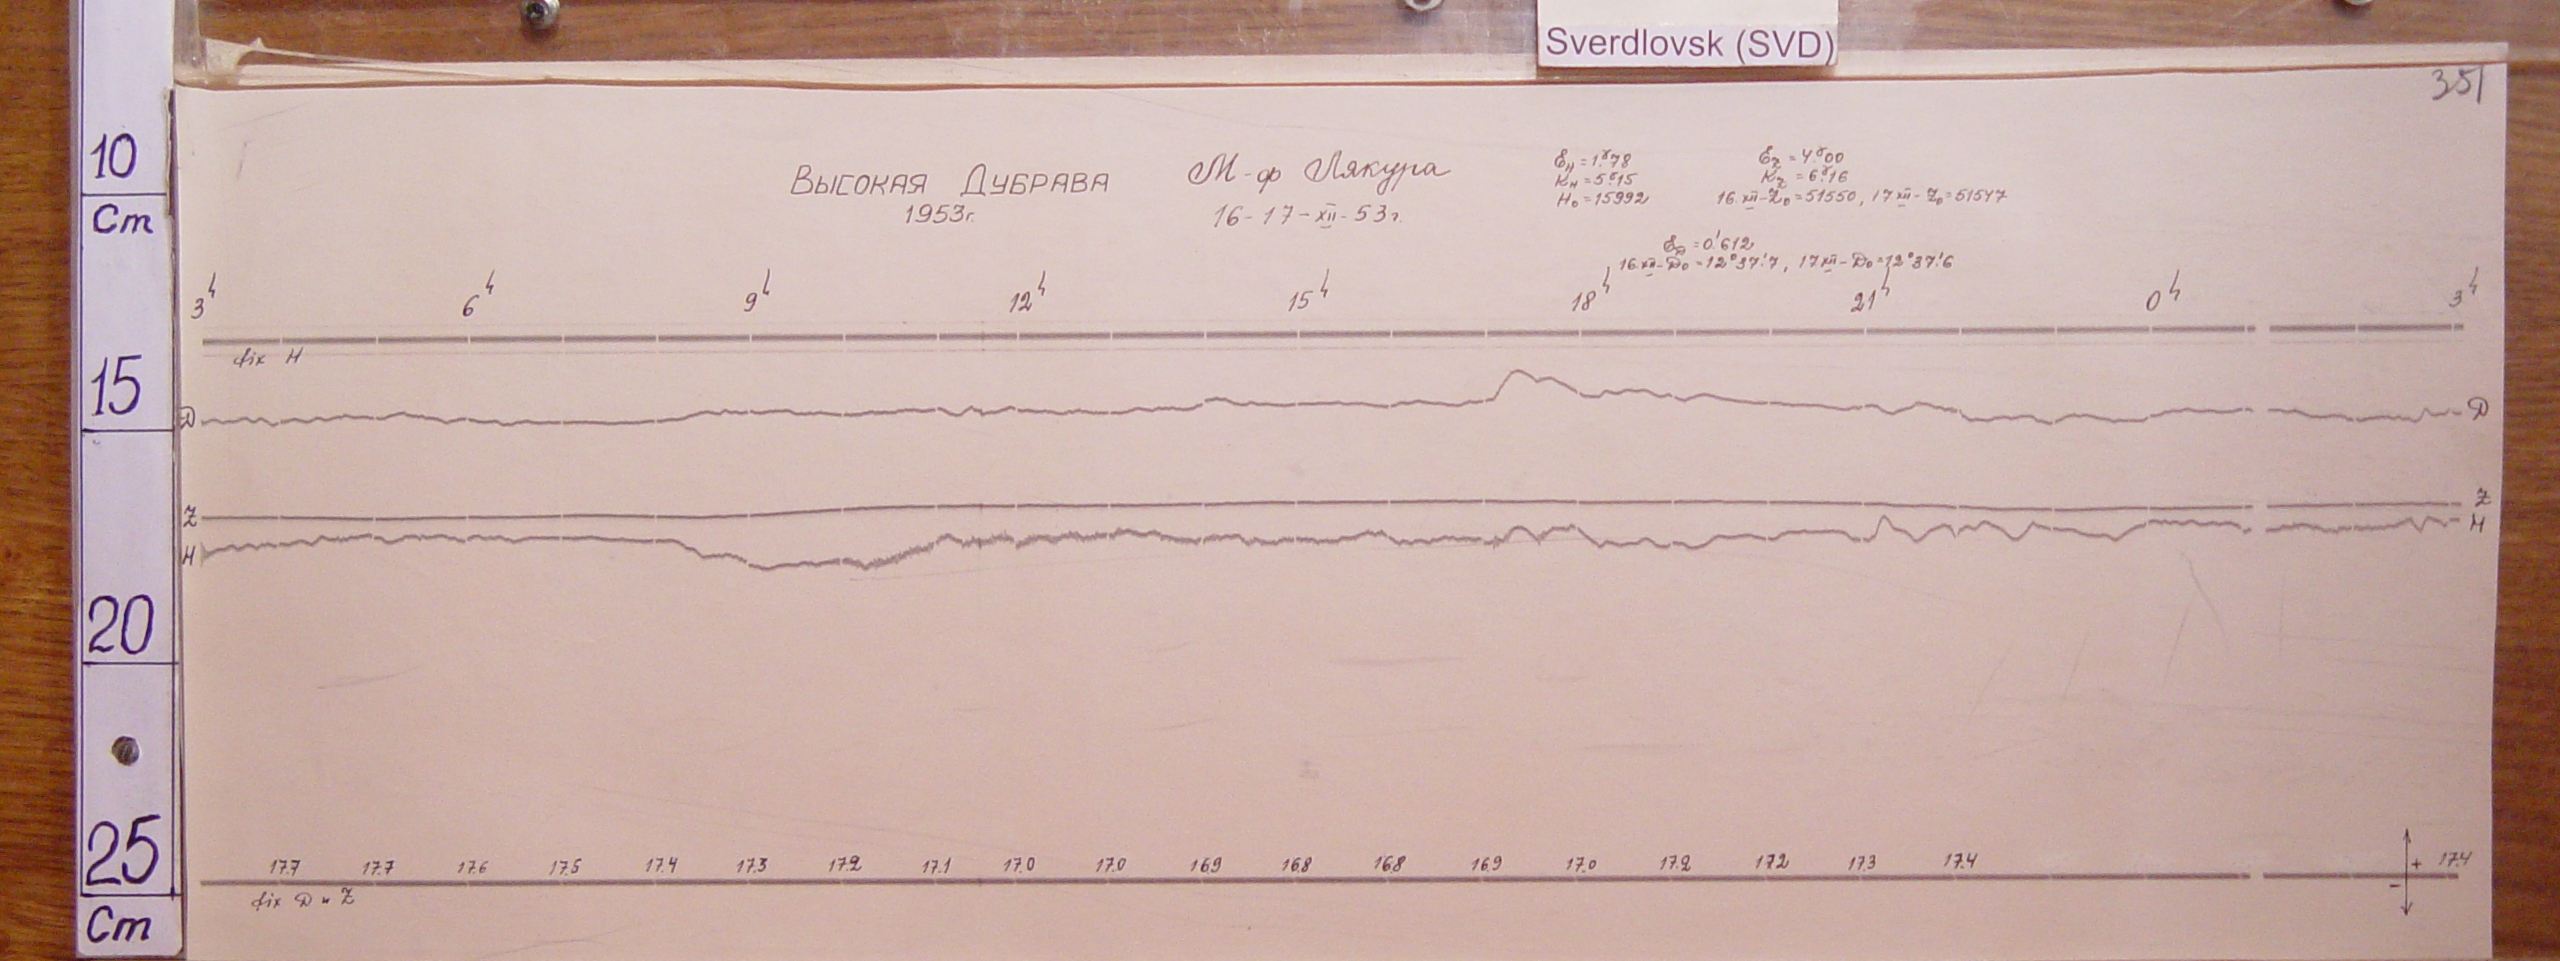 Sverdlovsk (SVD)
351
10
Cm
15
20
25
Cm
Высокая Дубрава
1953г.
М-ф Лякура
16-17-XII-53г.
Ɛн = 1.ᵞ78
Kн = 5.ᵞ15
H₀ = 15992
Ɛz = 4.ᵞ00
Kz = 6.ᵞ16
16.XII-Z₀=51550, 17XII-Z₀=51547
ƐD = 0.'612
16.XII-D₀=12°37.'7, 17XII-D₀=12°37.'6
3ʰ 6ʰ 9ʰ 12ʰ 15ʰ 18ʰ 21ʰ 0ʰ 3ʰ
fix H
D D
Z Z
H H
17.7 17.7 17.6 17.5 17.4 17.3 17.2 17.1 17.0 17.0 16.9 16.8 16.8 16.9 17.0 17.2 17.2 17.3 17.4 17.4
+
-
fix D и Z